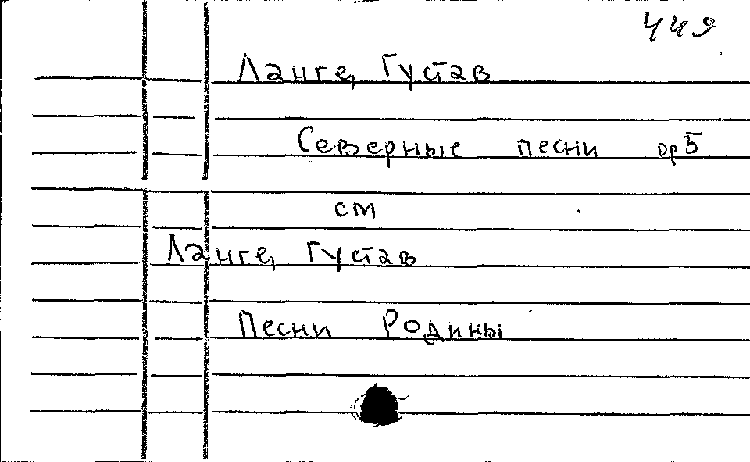 449
Ланге, Густав
Северные песни op 5
см
Ланге, Густав
Песни Родины